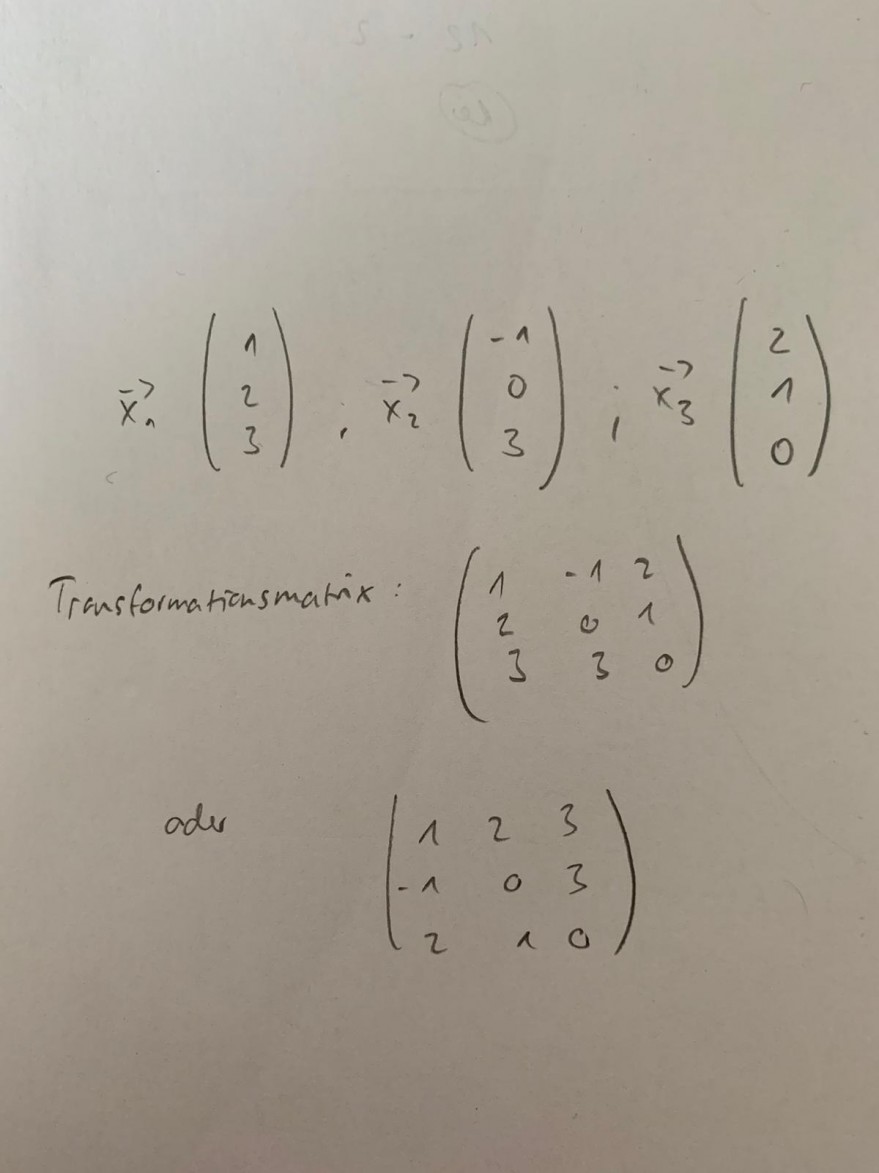 x⃗₁ ( 1 2 3 ) , x⃗₂ ( -1 0 3 ) ; x⃗₃ ( 2 1 0 )
Transformationsmatrix : ( 1 -1 2
2 0 1
3 3 0 )
oder ( 1 2 3
-1 0 3
2 1 0 )